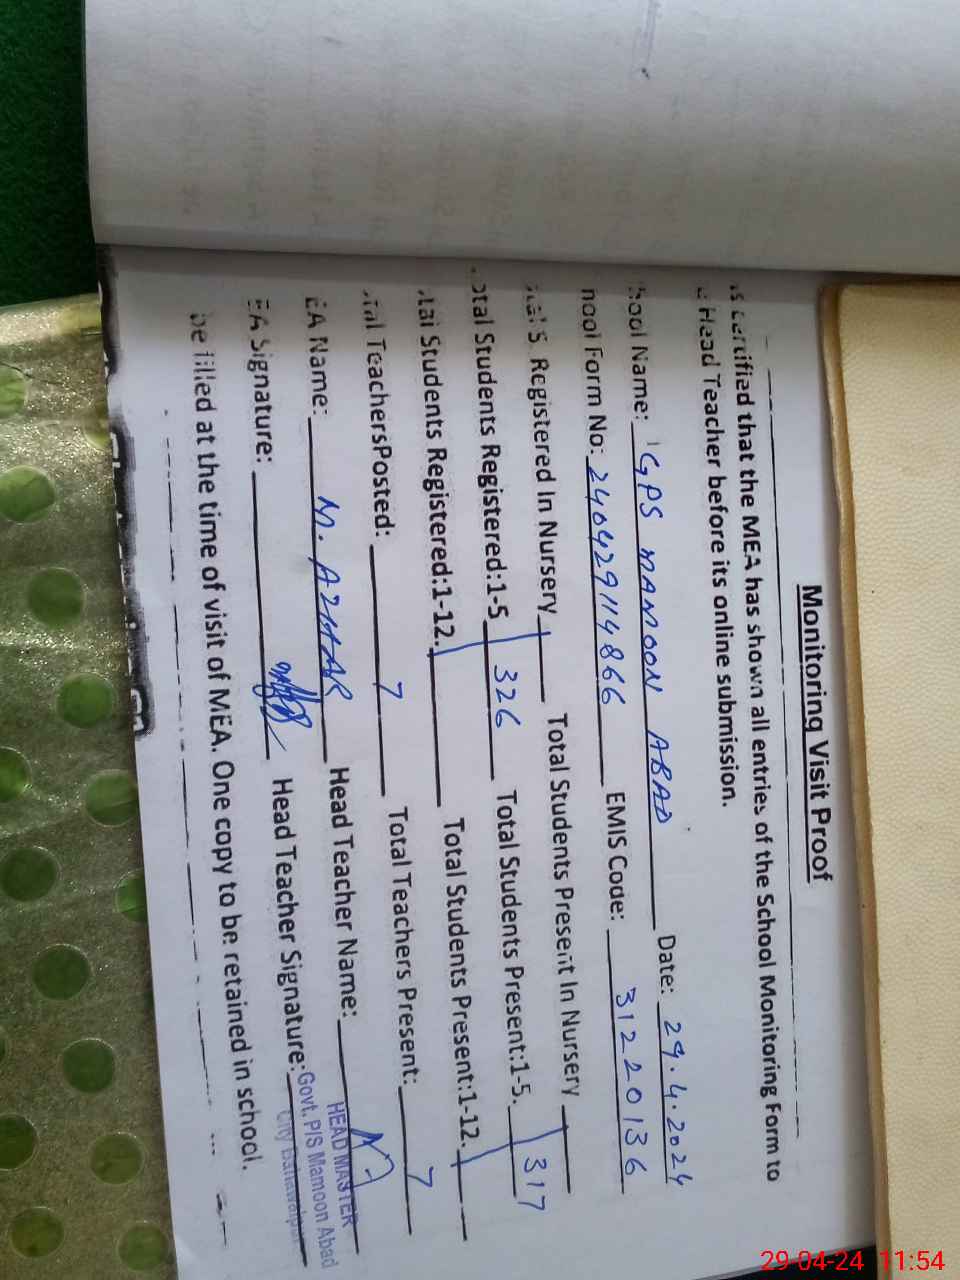 Monitoring Visit Proof
is certified that the MEA has shown all entries of the School Monitoring Form to
Head Teacher before its online submission.
hool Name: GPS MAMOON ABAD Date: 29.4.2024
hool Form No: 240429114866 EMIS Code: 31220136
S Registered In Nursery Total Students Present In Nursery
otal Students Registered:1-5 326 Total Students Present:1-5. 317
tal Students Registered:1-12. Total Students Present:1-12.
tal TeachersPosted: 7 Total Teachers Present: 7
EA Name: M. AZHAR Head Teacher Name:
EA Signature: Head Teacher Signature:
HEAD MASTER
Govt. P/S Mamoon Abad
City Bahawalpur
be filled at the time of visit of MEA. One copy to be retained in school.
29-04-24 11:54